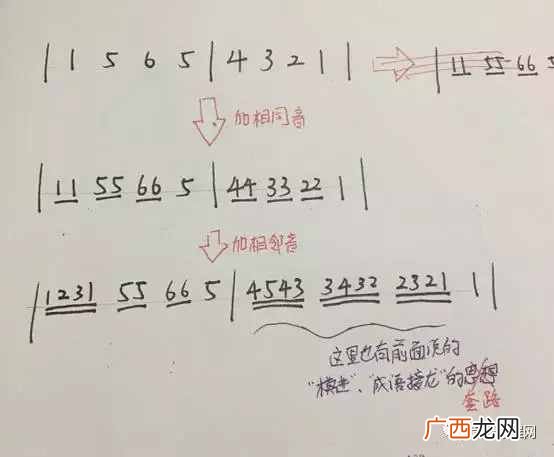 | 1 5 6 5 | 4 3 2 1 | | 11 55 66 5
加相同音
| 11 55 66 5 | 44 33 22 1 |
加相邻音
| 1231 55 66 5 | 4543 3432 2321 1 |
这里也有前面说的
“模进”、“成语接龙”的思想
套路
广西龙网